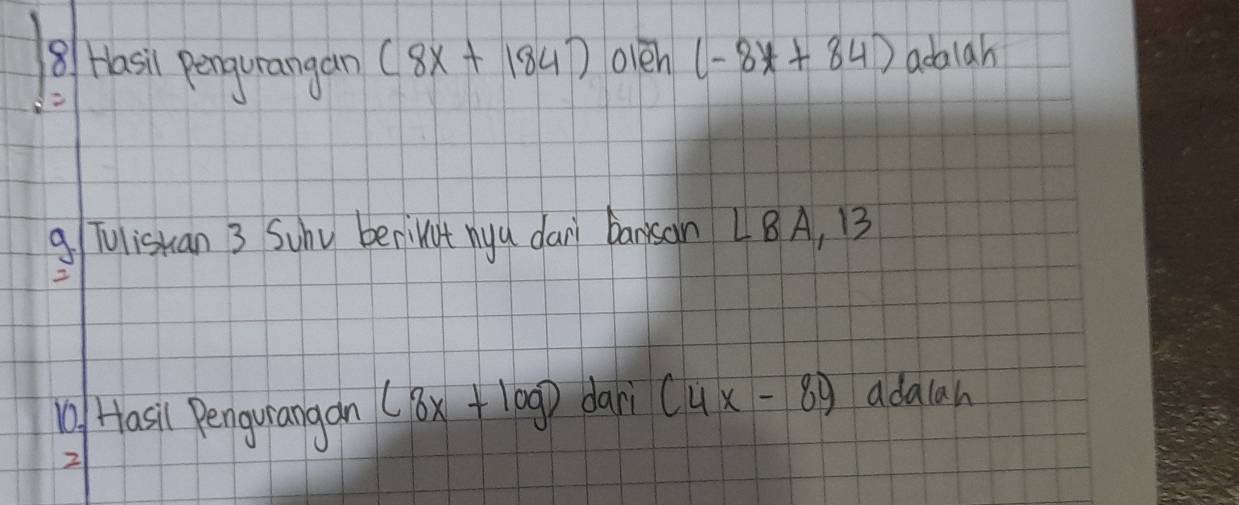 8. Hasil Pengurangan (8x + 184) oleh (-8x + 84) adalah
=
9. Tuliskan 3 Suhu berikut nya dari barisan L8A, 13
=
10. Hasil Pengurangan (8x + 10g) dari (4x - 8y) adalah
=